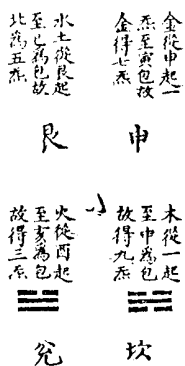 金從申起一
炁至寅包故
金得七炁
申
水土從艮起
至巳為包故
北為五炁
艮
木從一起
至申為包
故得九炁
坎
火從酉起
至亥為包
故得三炁
兌